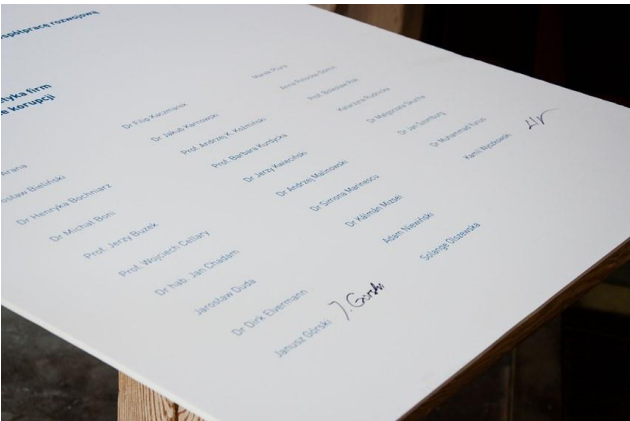 współpracę rozwojową
tyka firm
e korupcji
Arana
rosław Bieliński
Dr Henryka Bochniarz
Dr Michał Boni
Prof. Jerzy Buzek
Prof. Wojciech Cellary
Dr hab. Jan Chadam
Jarosław Duda
Dr Dirk Elvermann
Janusz Górski
J. Górski
Dr Filip Kaczmarek
Dr Jakub Karnowski
Prof. Andrzej K. Koźmiński
Prof. Barbara Kudrycka
Dr Jerzy Kwieciński
Dr Andrzej Malinowski
Dr Simona Marinescu
Dr Kálmán Mizsei
Adam Niewiński
Solange Olszewska
Marek
Prof. Bolesław Rok
Katarzyna Rudnicka
Dr Małgorzata Skucha
Dr Jan
Dr Muhammad Yunus
Kamil Wyszkowski